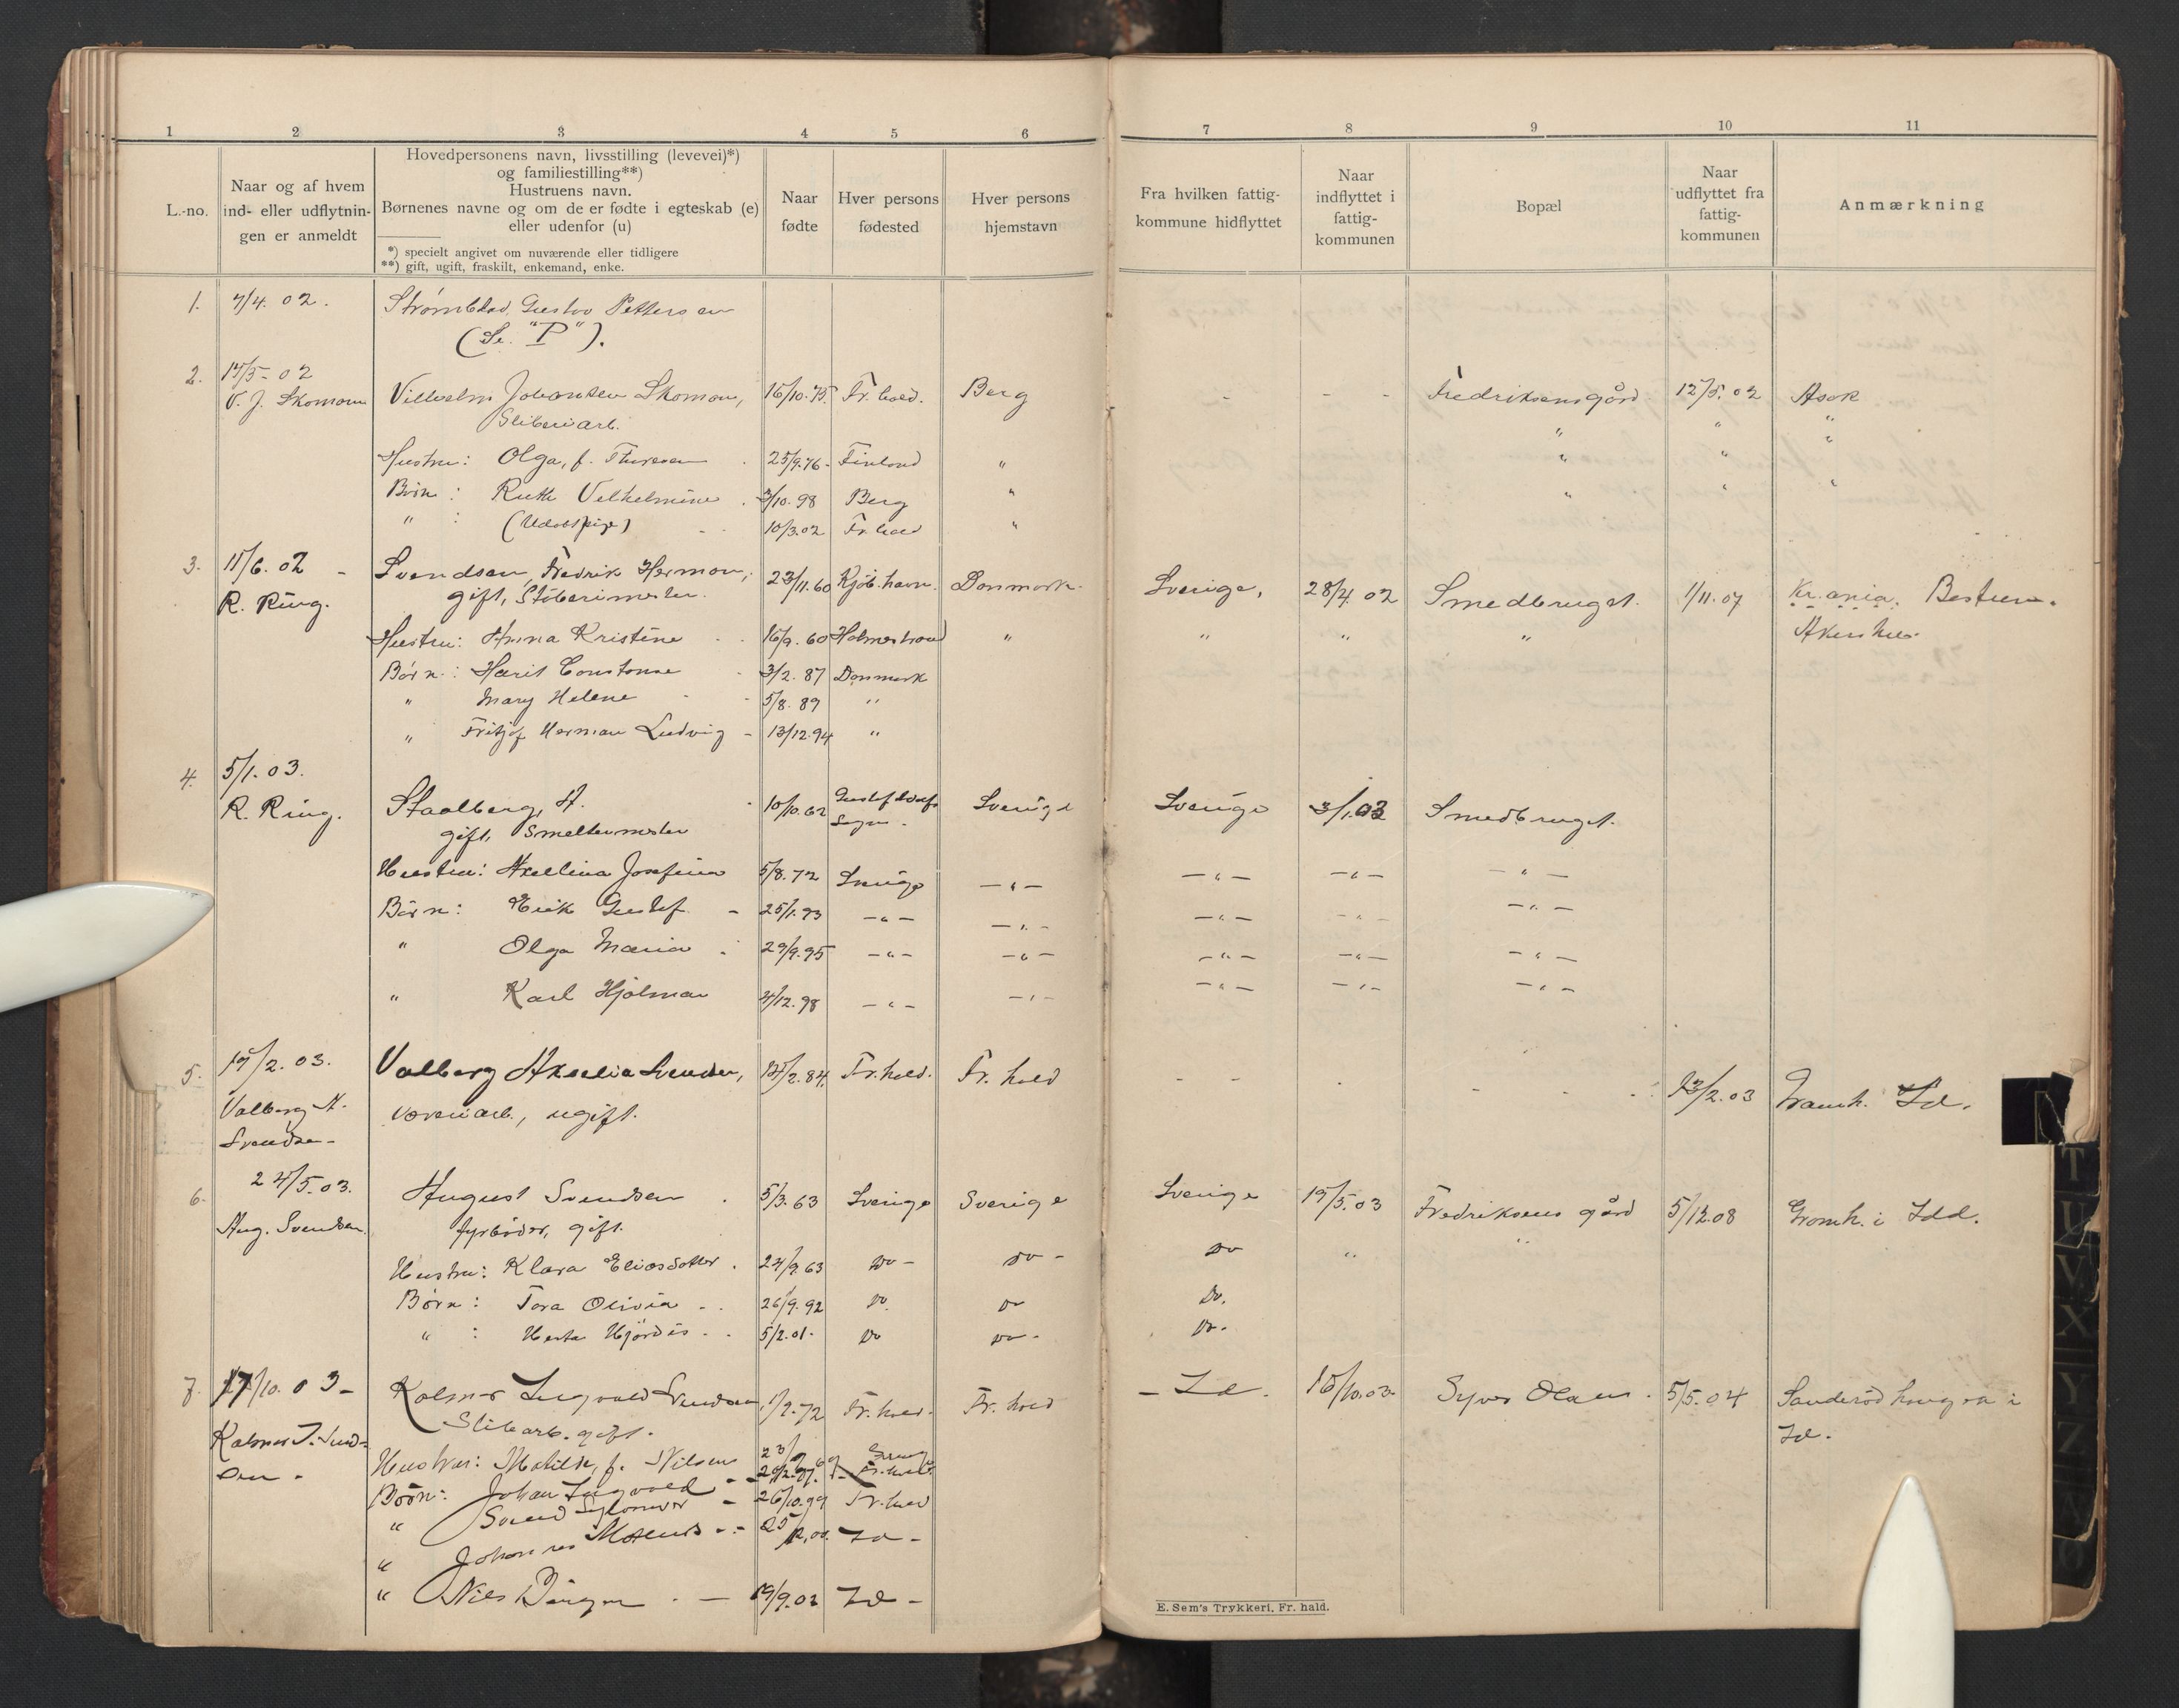 1 2 3 4 5 6 7 8 9 10 11
L.-no.
Naar og af hvem
ind- eller udflytnin-
gen er anmeldt
Hovedpersonens navn, livsstilling (levevei)*)
og familiestilling**)
Hustruens navn.
Børnenes navne og om de er fødte i egteskab (e)
eller udenfor (u)
*) specielt angivet om nuværende eller tidligere
**) gift, ugift, fraskilt, enkemand, enke.
Naar
fødte
Hver persons
fødested
Hver persons
hjemstavn
Fra hvilken fattig-
kommune hidflyttet
Naar
indflyttet i
fattig-
kommunen
Bopæl
Naar
udflyttet fra
fattig-
kommunen
Anmærkning
1. 7/4. 02. Strømblad, Gustav Pettersen
(Se "P").
2. 15/5- 02
V. J. Skomann Vilhelm Johansen Skoman, 16/10.75. Fr.hald. Berg - - - Fredriksensgård 12/5.02 Asak
Sliberiarb. " " "
Hustru: Olga, f. Thuresen 25/9.76- Finland " " " "
Børn: Ruth Vilhelmine 3/10.98 Berg " " " "
" : (Udøbt pige) 10/3.02 Fr.hald "
3. 11/6. 02 - Svendsen, Fredrik Herman, 23/11.60 Kjøb.havn. Danmark. Sverige, 28/4.02 Smedbruget. 1/11.07 Kr.ania. Bestum.
R. Ring. gift, Støberimester. Akershus.
Hustru: Anna Kristine 16/9.60 Holmestrand " " " "
Børn: Harit Constanse 3/2.87 Danmark
" Mary Helene 5/8.89 "
" Fritjof Herman Ludvig - 13/12.94 "
4. 5/1.03.
R. Ring. Staalberg, A. 10/10.62 Gustaf Adolfs Sverige Sverige 3/1.03 Smedbruget.
gift, Smeltermester Sogn.
Hustru: Axellina Josefina 5/8.72 Sverige -"- -"- -"- -"-
Børn: Erik Gustaf - 25/1.93 -"- -"- -"- -"- -"-
" Olga Maria 29/9.95 -"- -"- -"- -"- -"-
" Karl Hjalmar 4/12.98 -"- -"- -"- -"- -"-
5. 19/2.03. Valberg Axelia Svendsen, 12/2.84. Fr.hald. Fr.hald - - - - - 13/2.03 Gramh. Id.
Valberg A. væveriarb., ugift.
Svendsen-
6. 24/5.03. August Svendsen 5/3.63 Sverige Sverige Sverige 19/5.03 Fredriksens gård 5/12.08 Gramh. i Idd.
Aug. Svendsen fyrbøder, gift.
Hustru: Klara Eliasdotter. 24/9.63 Do - Do - Do " "
Børn: Tora Olivia - . 26/9.92 Do. Do Do.
" : Herta Hjördis - . 5/2.01. Do Do - Do -
7. 17/10.03- Kalmar Ingvald Svendsen 1/9.72 Fr.hald. Fr.hald - Id. 15/10.03- Syver Olsen. 5/5.04 Sanderød haugen i
Kalmar I. Svend- Slibarb. gift. Id.
sen - Hustru: Matilde, f. Nilsen
Børn: Johan Ingvald - Fr.hald.
" Svend - 26/10.99 Fr.hald
" Johannes - Id -
" Nils - 19/9.02 Id -
E. Sem's Trykkeri, Fr. hald.
T
U
V
X
Y
Z